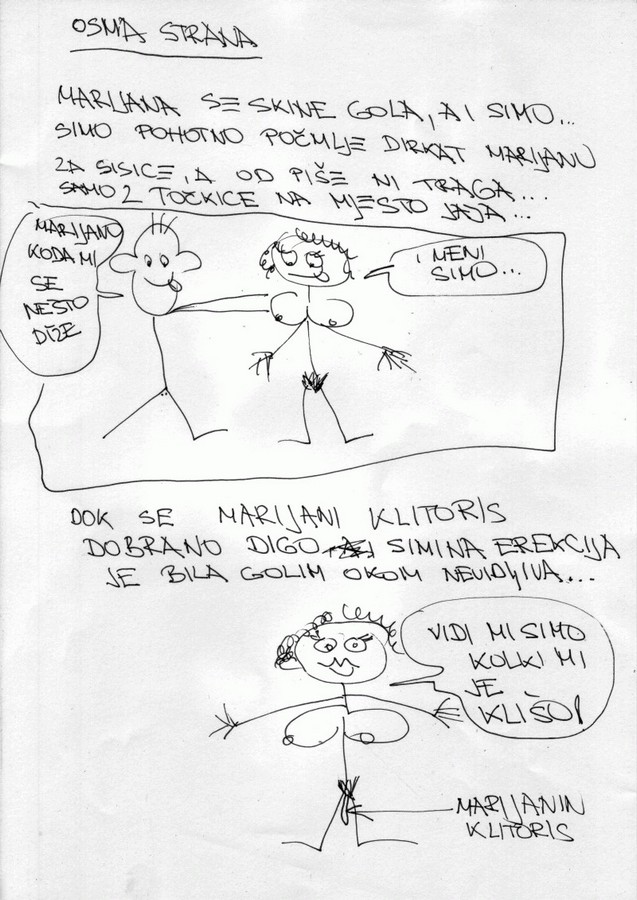 OSMA STRANA
MARIJANA SE SKINE GOLA, A I SIMO...
SIMO POHOTNO POČMLJE DIRKAT MARIJANU
ZA SISICE, A OD PIŠE NI TRAGA...
SAMO 2 TOČKICE NA MJESTO JAJA...
MARIJANO
KODA MI
SE
NEŠTO
DIŽE
I MENI
SIMO...
DOK SE MARIJANI KLITORIS
DOBRANO DIGO SIMINA EREKCIJA
JE BILA GOLIM OKOM NEVIDLJIVA...
VIDI MI SIMO
KOLKI MI
JE
KLIŠO!
MARIJANIN
KLITORIS